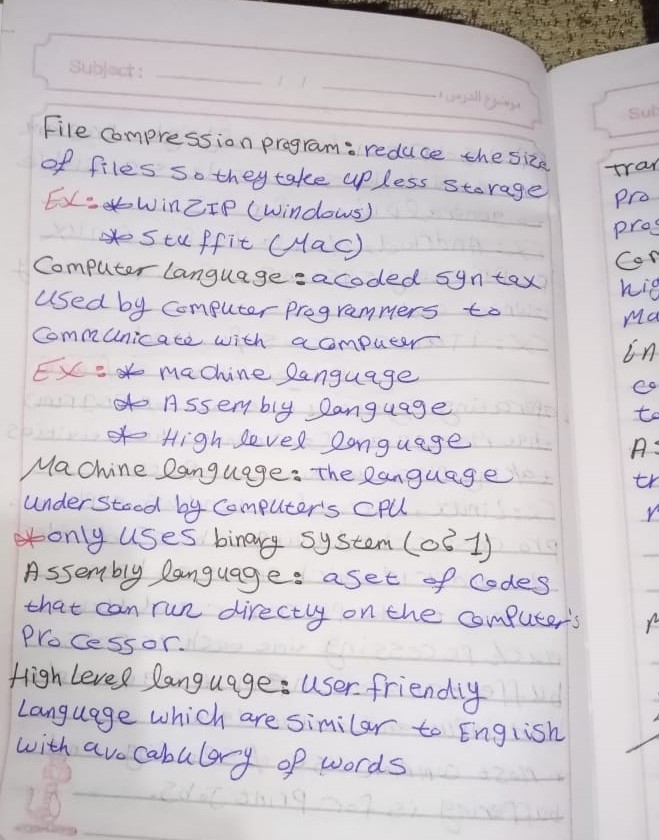 Subject: / / موضوع الدرس:
File compression program: reduce the size
of files so they take up less storage
Ex: * WinZIP (windows)
* Stuffit (Mac)
Computer language: a coded syntax
used by computer programmers to
communicate with a computer
Ex: * machine language
* Assembly language
* High level language
Machine language: The language
understood by computer's CPU
* only uses binary system (0 & 1)
Assembly language: a set of codes
that can run directly on the computer's
processor.
High Level language: user friendly
Language which are similar to English
with a vocabulary of words
Sub
tran
pro
prog
Com
hig
Ma
in
co
to
A:
tr